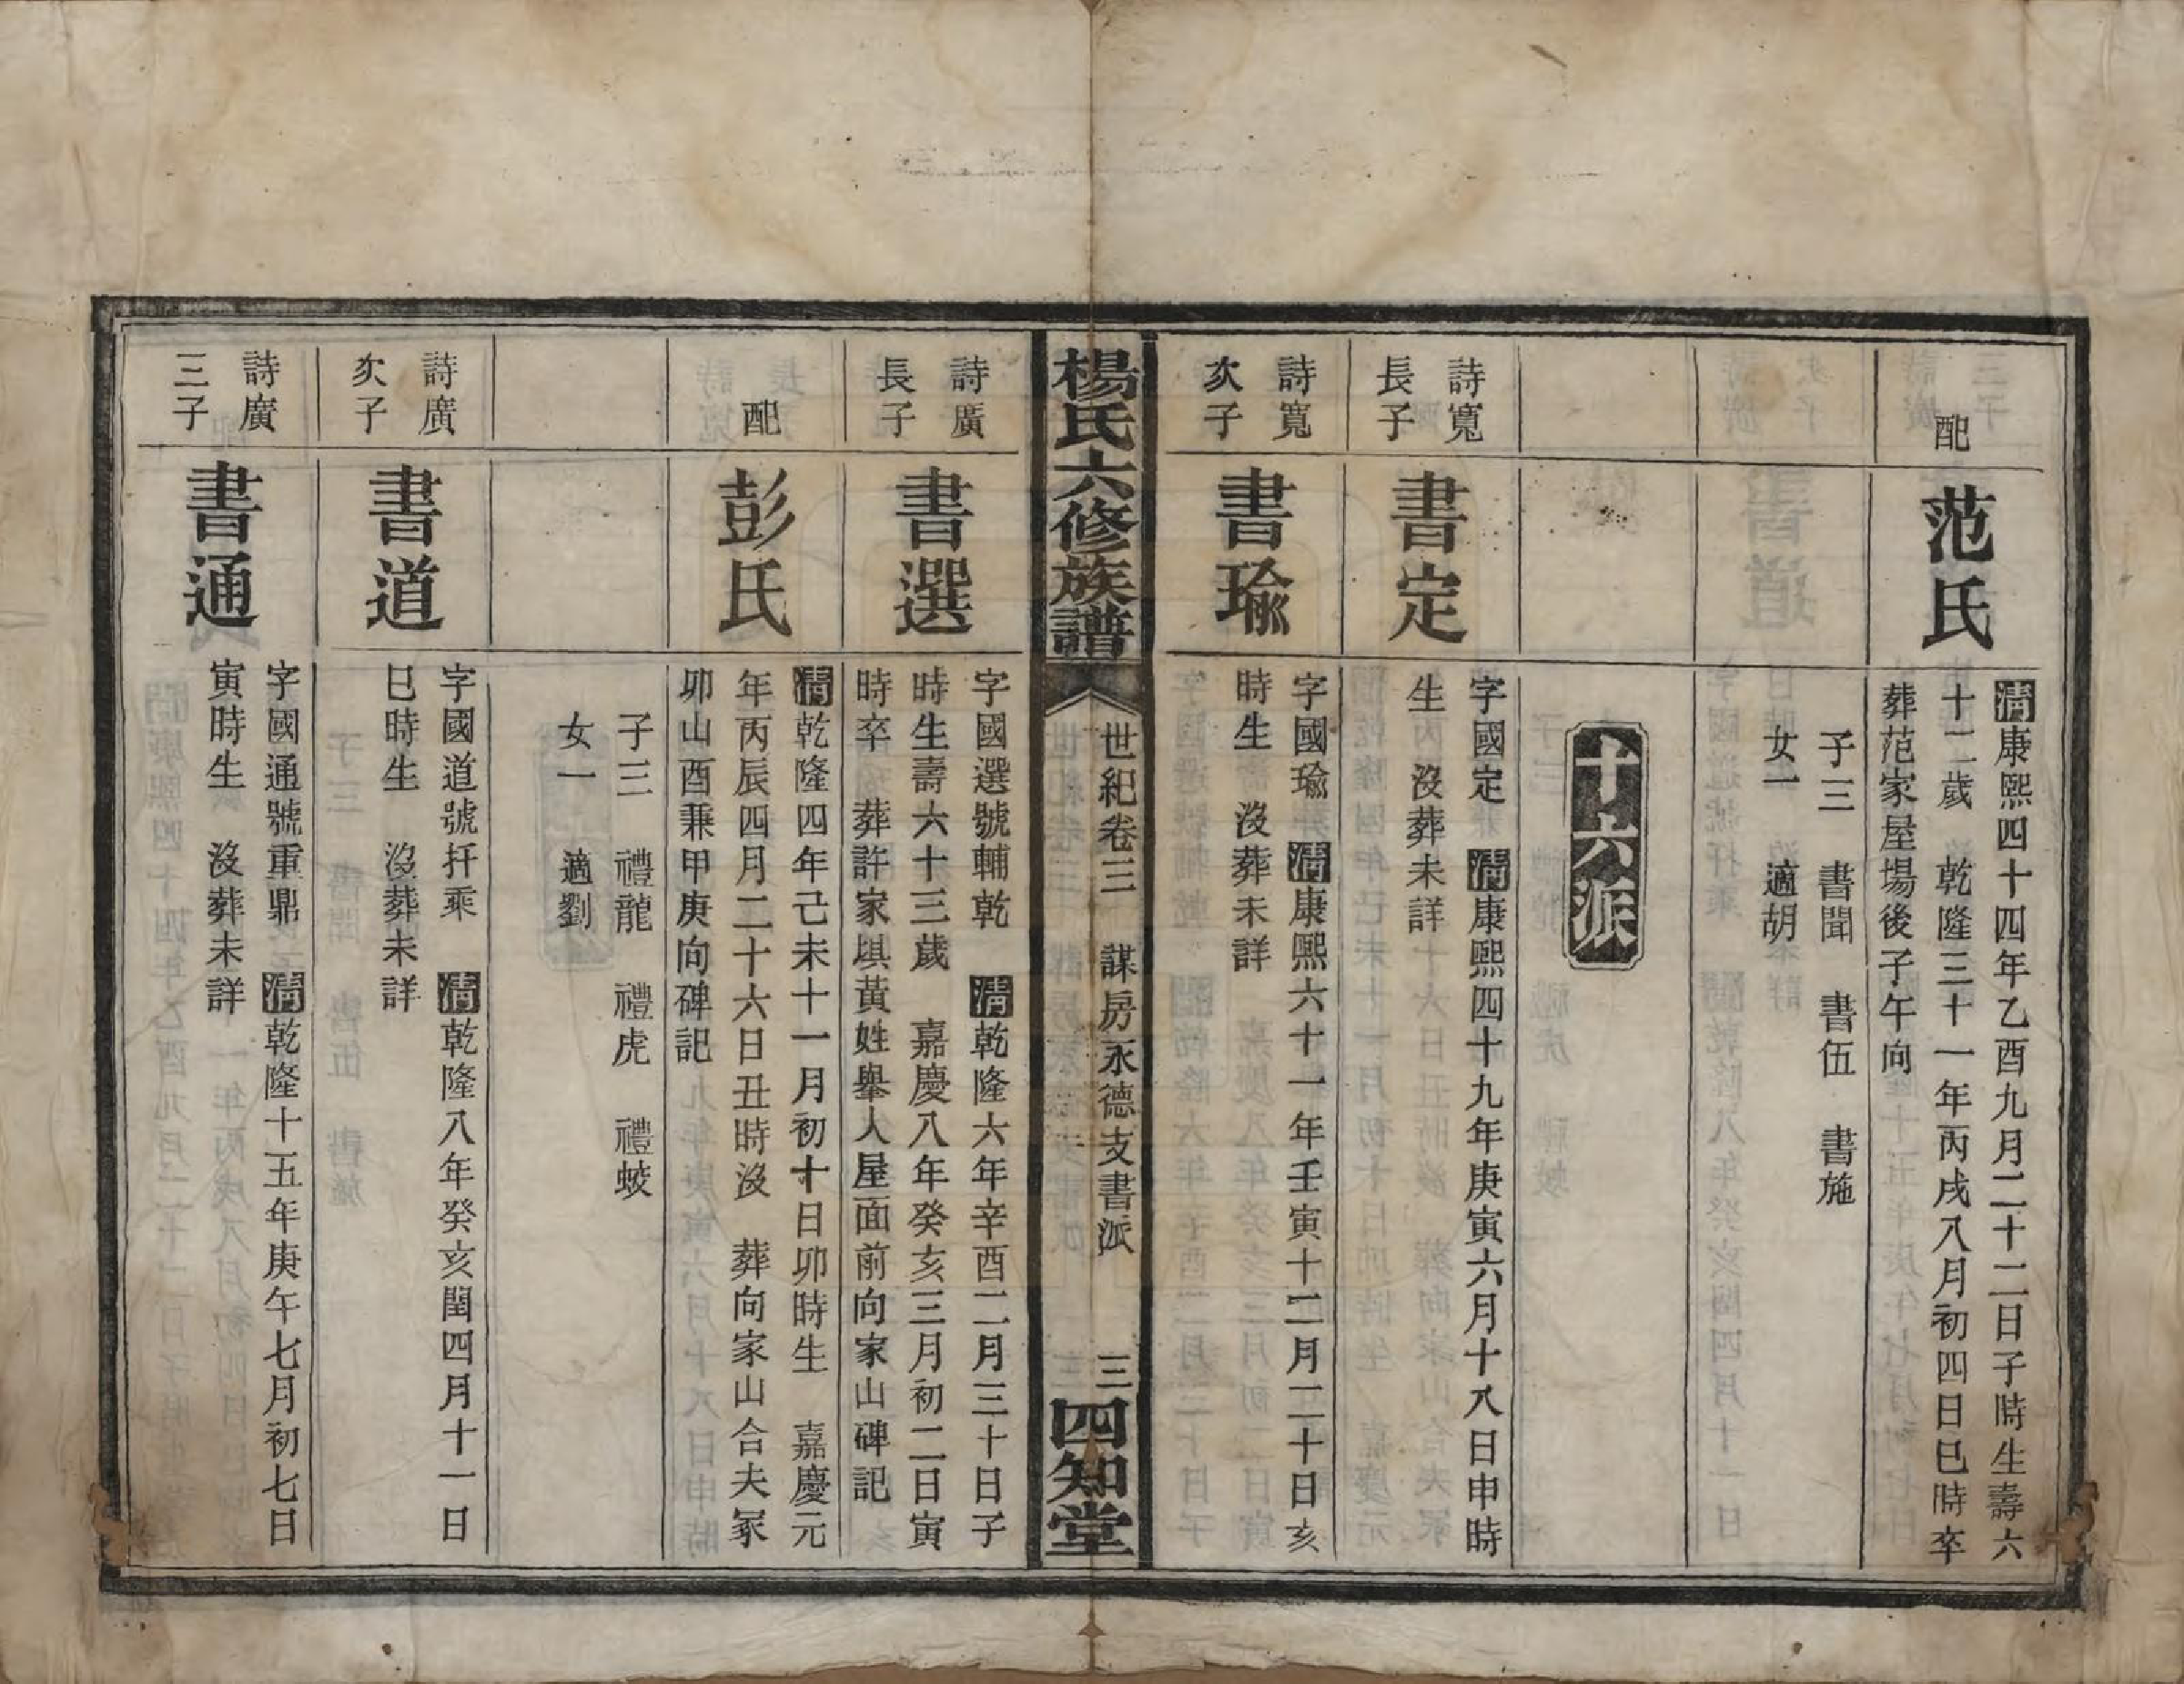 配
范氏
清康熙四十四年乙酉九月二十二日子時生壽六
十二歲　乾隆三十一年丙戌八月初四日巳時卒
葬范家屋場後子午向
子三　書聞　書伍　書施
女一　適胡
十六派
詩寬
長子
書定
字國定　清康熙四十九年庚寅六月十八日申時
生　沒葬未詳
詩寬
次子
書瑜
字國瑜　清康熙六十一年壬寅十二月二十日亥
時生　沒葬未詳
楊氏六修族譜
世紀卷三　謀房永德支書派
三
四知堂
詩廣
長子
書選
字國選號輔乾　清乾隆六年辛酉二月三十日子
時生壽六十三歲　嘉慶八年癸亥三月初二日寅
時卒　葬許家垻黃姓舉人屋面前向家山碑記
配
彭氏
清乾隆四年己未十一月初十日卯時生　嘉慶元
年丙辰四月二十六日丑時沒　葬向家山合夫冢
卯山酉兼甲庚向碑記
子三　禮龍　禮虎　禮蛟
女一　適劉
詩廣
次子
書道
字國道號扦乘　清乾隆八年癸亥閏四月十一日
巳時生　沒葬未詳
詩廣
三子
書通
字國通號重鼎　清乾隆十五年庚午七月初七日
寅時生　沒葬未詳